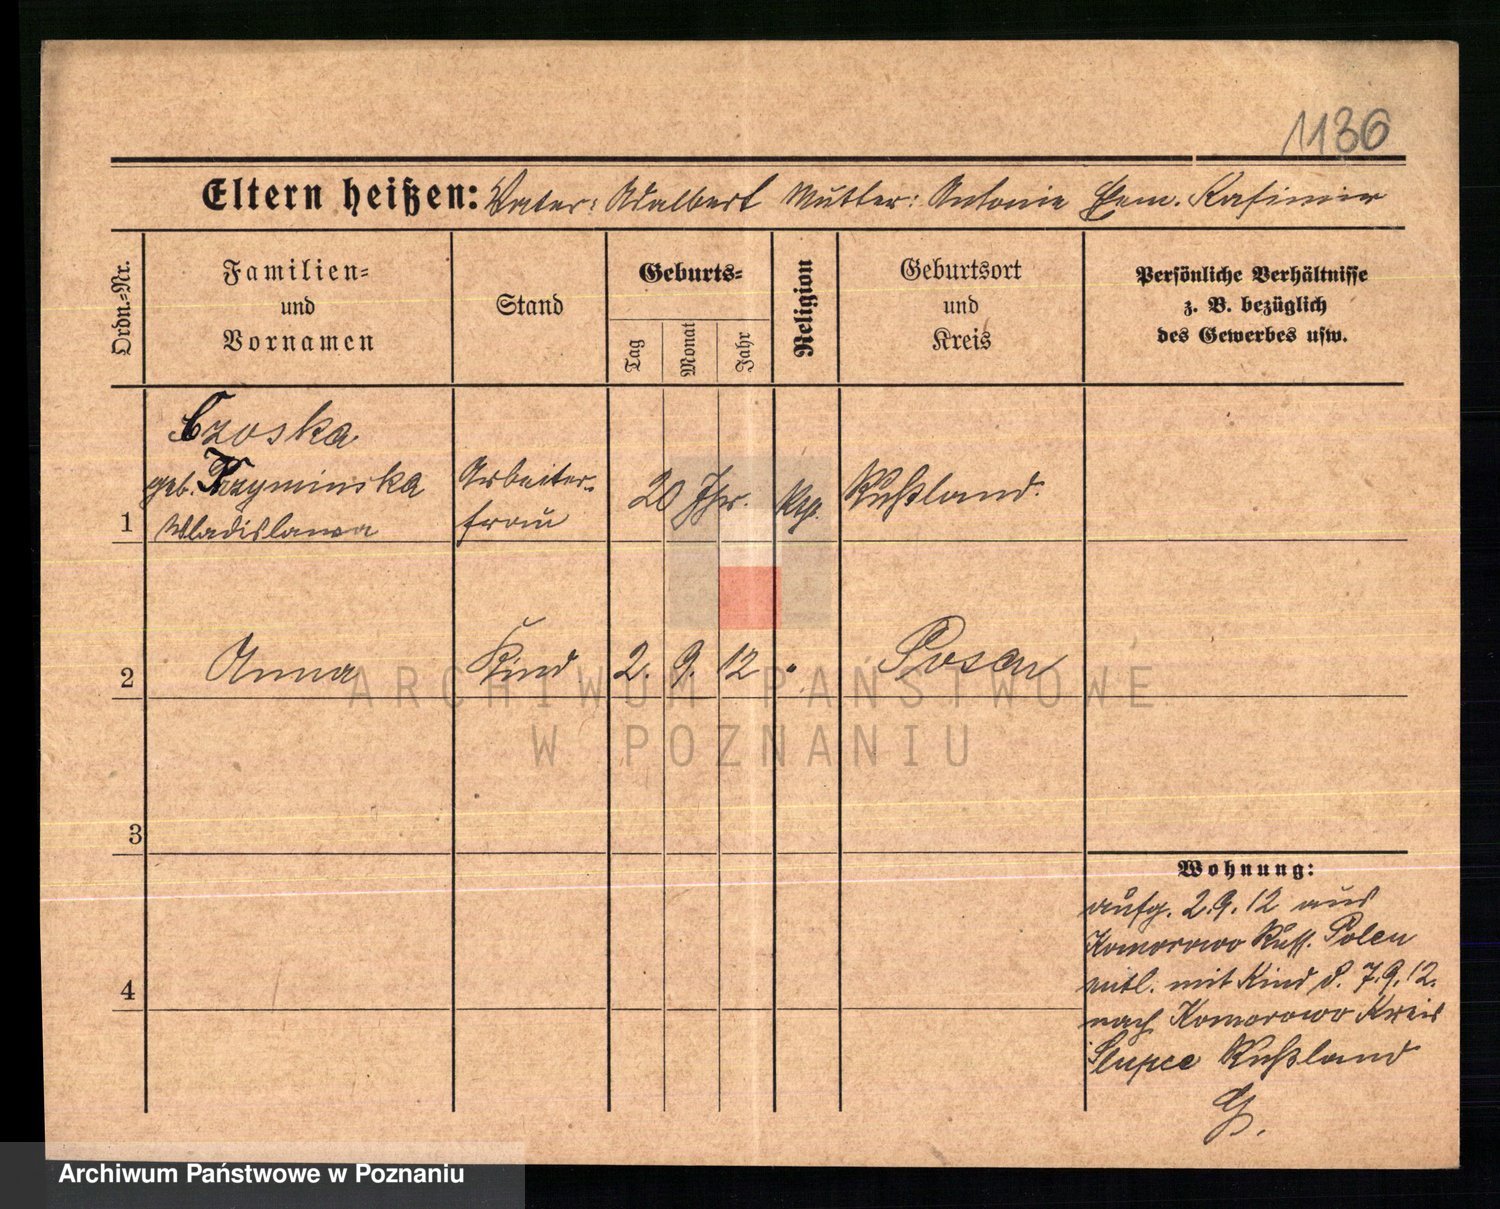 1136
Eltern heißen: Vater: Adalbert Mutter: Antonie Ehem. Kasimir
Ordn.-Nr.
Familien-
und
Vornamen
Stand
Geburts-
Tag
Monat
Jahr
Religion
Geburtsort
und
Kreis
Persönliche Verhältnisse
z. B. bezüglich
des Gewerbes usw.
Czoska
geb. Krzyminska
1 Wladislawa
Arbeiter-
frau
20 Jhr.
kth.
Rußland.
2 Anna Kind 2. 9. 12 " Posen
3
4
Wohnung:
aufg. 2.9.12 aus
Komorowo Russ. Polen
entl. mit Kind d. 7.9.12.
nach Komorowo Kreis
Slupce Rußland
G.
ARCHIWUM PAŃSTWOWE
W POZNANIU
Archiwum Państwowe w Poznaniu